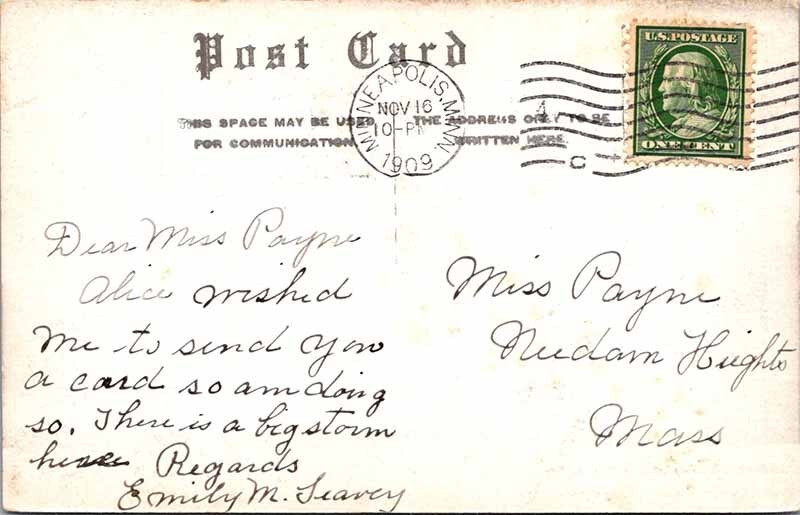 Post Card
THIS SPACE MAY BE USED
FOR COMMUNICATION.
THE ADDRESS ONLY TO BE
WRITTEN HERE.
MINNEAPOLIS, MINN.
NOV 16
10-PM
1909
4
C
U.S. POSTAGE
ONE CENT
Dear Miss Payne
Alice wished
me to send you
a card so am doing
so. There is a big storm
here Regards
Emily M. Seavey
Miss Payne
Needam Heights
Mass